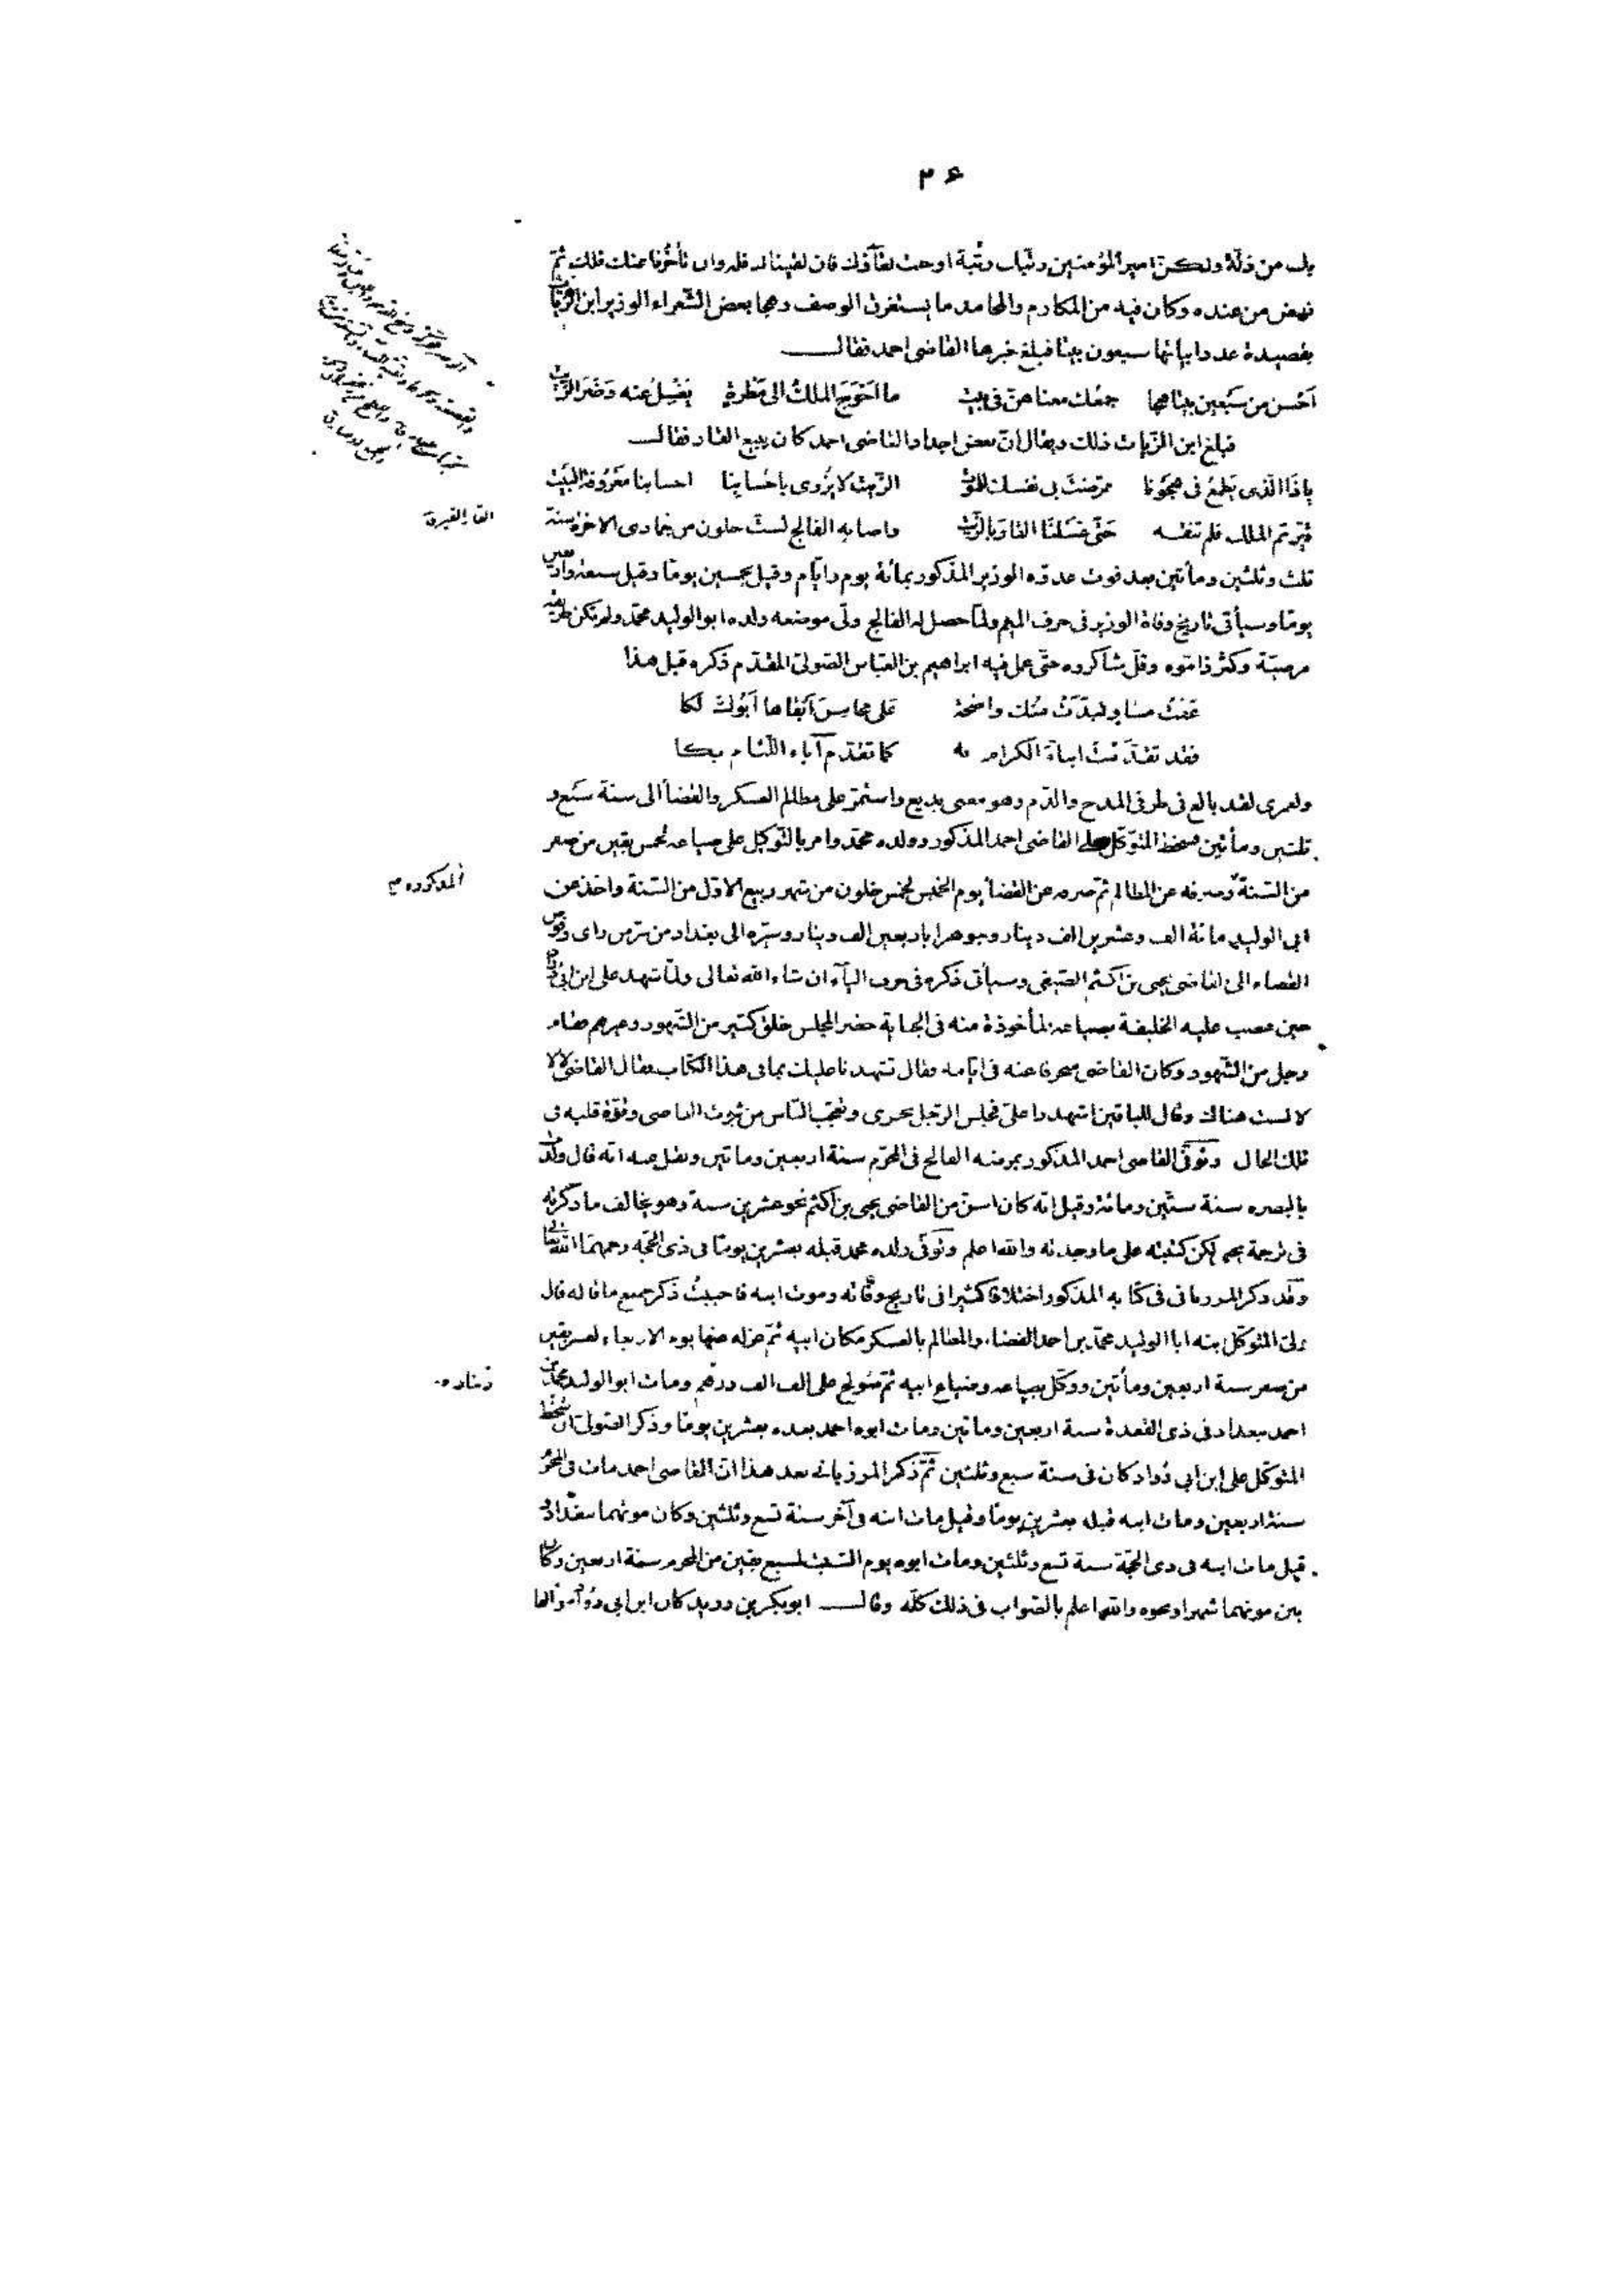 ۲۶
بك من ذلّة ولكن امير المؤمنين رتّبك رتبة اوجبت لقآؤك فان لقيناك فله وان تأخّرنا عنك فلك ثمّ
نهض من عنده وكان فيه من المكارم والمحامد ما يستغرق الوصف وهجا بعض الشّعراء الوزير ابن الزّيات
بقصيدة عدد ابياتها سبعون بيتا فبلغ خبرها القاضى احمد فقال
اَحْسن من سَبْعين بيتا هجا جمعُك معناهنّ فى بيت ما اَحْوَجَ الملكَ الى مَطْرةٍ يَغْسِلُ عنه وَضَرَ الزّيت
فبلغ ابن الزّيات ذلك ويقال انّ بعض اجداد القاضى احمد كان يبيع القار فقال
ياذَا الّذى يَطْمَعُ فى هجْوِنا عرّضتَ بى نفسك للموْت الزّيتُ لا يُزْرى باَحْسابنا احسابنا مَعْرُوفة البَيْت
قيّرتم الملك فلم تنقّه حَتّى غَسَلْنَا القارَ بالزّيت واصابه الفالج لستّ خلون من جمادى الاخرة سنة
القار القير ق
ثلث وثلثين ومأتين بعد فوت عدوّه الوزير المذكور بمائة يوم وايّام وقيل بخمسين يومًا وقيل بسبعة واربعين
يومًا وسيأتى تاريخ وفاة الوزير فى حرف الميم ولمّا حصل له الفالج ولّى موضعه ولده ابو الوليد محمّد ولم تكن طريقته
مرضيّة وكثر ذامّوه وقلّ شاكروه حتّى عمل فيه ابراهيم بن العبّاس الصّولىّ المقدّم ذكره قبل هذا
عَفَتْ مساوٍ تبدّتْ منك واضحة عَلى محاسنَ اَبْقاها اَبُوكَ لَكا
فقد تقدّمتَ ابناءَ الكرام به كما تقدّم آباء اللّئام بكا
ولعمرى لقد بالغ فى طرفى المدح والذّم وهو معنى بديع واستمرّ على مظالم العسكر والقضاء الى سنة سَبْع و
ثلثين ومأتين فسخط المتوكّل على القاضى احمد المذكور وولده محمّد وامر بالتّوكيل على ضياعه لخمس بقين من صفر
من السّنة وصرفه عن المظالم ثمّ صرفه عن القضاء يوم الخميس لخمس خلون من شهر ربيع الاوّل من السّنة واخذ من
المذكوره
ابى الوليد مائة الف وعشرين الف دينار وجوهرا باربعين الف دينار وسيّره الى بغداد من سرّ من راى وفوّض
القضاء الى القاضى يحيى بن اكثم الصّيفى وسيأتى ذكره فى حرف اليآء ان شاء الله تعالى ولمّا شهد على ابن ابى دُواد
حين غضب عليه الخليفة بضياعه المأخوذة منه فى الجناية حضر المجلس خلق كثير من الشّهود وغيرهم فقام
رجل من الشّهود وكان القاضى منحرفا عنه فى ايّامه فقال تشهدنا عليك بما فى هذا الكتاب فقال القاضى لا لا
لا لست هناك وقال للباقين اشهدوا علىّ فجلس الرّجل بخزى وتعجّب النّاس من ثبوت القاضى وقوّة قلبه فى
تلك الحال وتوفّى القاضى احمد المذكور بمرضه الفالج فى المحرّم سنة اربعين ومأتين ونقل عنه انّه قال ولدت
بالبصره سنة ستّين ومائة وقيل انّه كان اسنّ من القاضى يحيى بن اكثم نحو عشرين سنة وهو يخالف ما ذكرته
فى ترجمة يحيى لكن كتبته على ما وجدته والله اعلم وتوفّى ولده محمد قبله بعشرين يومًا فى ذى الحجّة رحمهما الله تعالى
وقد ذكر المرزبانى فى كتابه المذكور اختلافا كثيرا فى تاريخ وفاته وموت ابنه فاحببتُ ذكر جميع ما قاله قال
ولّى المتوكّل ابنه ابا الوليد محمّد بن احمد القضاء والمظالم بالعسكر مكان ابيه ثمّ عزله عنها يوم الاربعاء لعشر بقين
من صفر سنة اربعين ومأتين ووكّل بضياعه وضياع ابيه ثمّ صُولح على الف الف درهم ومات ابو الوليد محمّد بن
دينار ه
احمد ببغداد فى ذى القعدة سنة اربعين ومأتين ومات ابوه احمد بعده بعشرين يومًا وذكر الصّولىّ انّ سُخط
المتوكّل على ابن ابى دُواد كان فى سنة سبع وثلثين ثمّ ذكر المرزبانى بعد هذا انّ القاضى احمد مات فى المحرّم
سنة اربعين ومات ابنه قبله بعشرين يومًا وقيل مات ابنه فى آخر سنة تسع وثلثين وكان موتهما ببغداد و
قيل مات ابنه فى ذى الحجّة سنة تسع وثلثين ومات ابوه يوم السّبت لسبع بقين من المحرم سنة اربعين وكان
بين موتهما شهر او نحوه والله اعلم بالصّواب فى ذلك كلّه وقال ابو بكر بن دريد كان ابن ابى دُواد مؤالفا